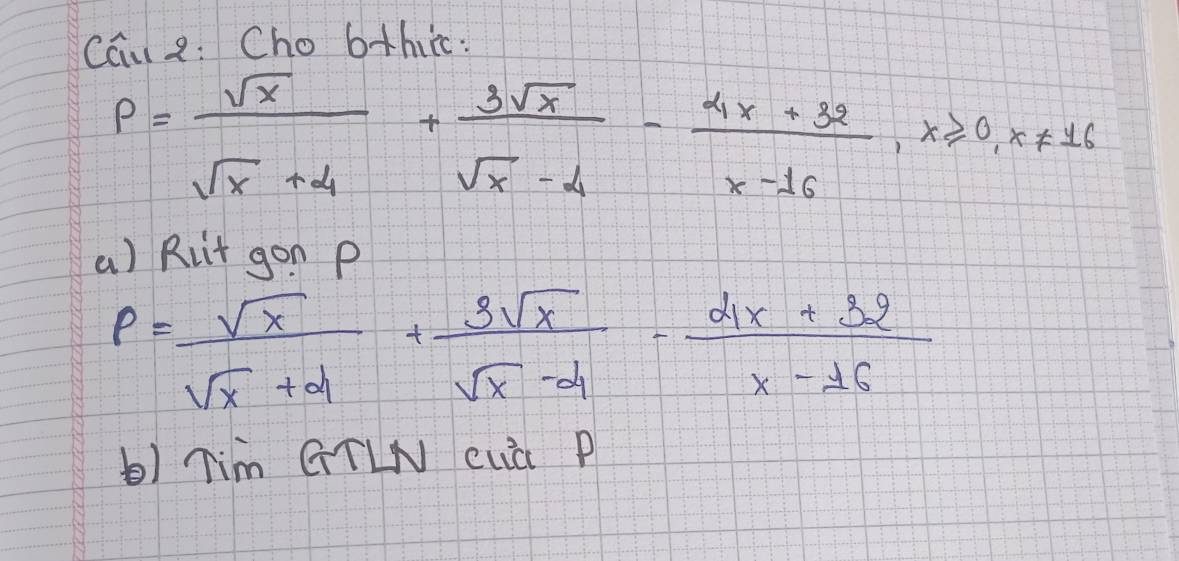 Câu 2: Cho bthức:
P = √x / (√x + 4) + 3√x / (√x - 4) - (4x + 32) / (x - 16), x ≥ 0, x ≠ 16
a) Rút gọn P
P = √x / (√x + 4) + 3√x / (√x - 4) - (4x + 32) / (x - 16)
b) Tìm GTLN của P